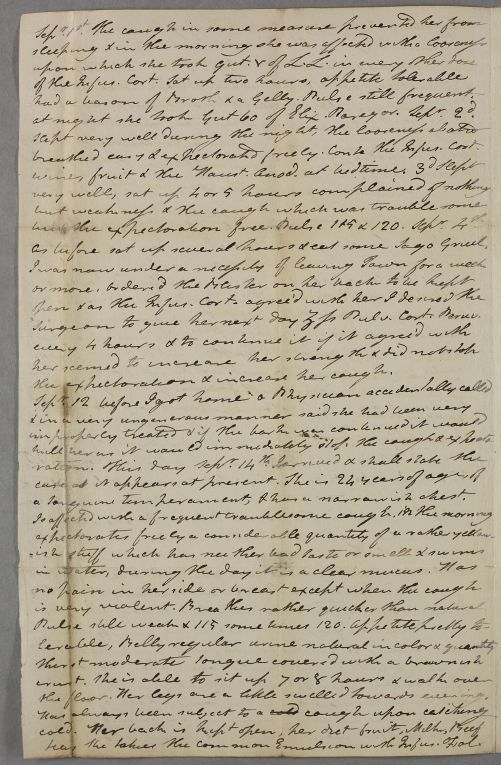 Sepr. 1st. the cough in some measure prevented her from
sleeping & in the morning she was affected with a Looseness
upon which she took gut. v of L.L. in every other dose
of the Infus. Cort. Sat up two hours, appetite tolerable
had a bason of Broth & a Gelly. Pulse still frequent
at night she took Gut 60 of Elix. Paregor. Sepr. 2d
Slept very well during the night, the looseness abated
breathed easy & expectorated freely. Conta the Infus. Cort.
wine, fruit & the Haust. Anod. at bedtime. 3d Slept
very well, sat up 4 or 5 hours complained of nothing
but weakness & the cough which was trouble some
the expectoration free. Pulse 115 & 120. Sepr. 4th
as before sat up several hours & eat some Sago Gruel,
I was now under a necessity of leaving Town for a week
or more. Ordered the Blister on her back to be kept
open & as the Infus. Cort. agreed with her I desired the
Surgeon to give her next day ʒſs Pulv. Cort. Peruv.
every 4 hours & to continue it if it agreed with
her seemed to increase her strength & did not stop
the expectoration & increase her cough.
Sepr. 12 before I got home a Physician accidentally called
& in a very ungenerous manner said she had been very
improperly treated & if the bark was continued it would
kill her as it would immediately stop the cough & expecto
ration. This day Sepr. 14th I arrived & shall state the
case as it appears at present. She is 24 years of age of
a sanguine temperament, & has a narrowish chest.
Is affected with a frequent troublesome cough, in the morning
expectorates freely a considerable quantity of a rather yellow-
ish stuff which has neither bad taste or smell & swims
in water, during the day it is a clear mucus. Has
no pain in her side or breast except when the cough
is very violent. Breathes rather quicker than natural
Pulse still weak & 115 some times 120. Appetite pretty to
lerable, Belly regular urine natural in color & quantity
thirst moderate tongue covered with a brownish
crust. She is able to sit up 7 or 8 hours & walk over
the floor. Her legs are a little swelled towards evening,
Has always been subject to a cough upon catching
cold. Her back is kept open, her diet fruit, Milk, Beef
tea, She takes the common Emulsion with Infus.